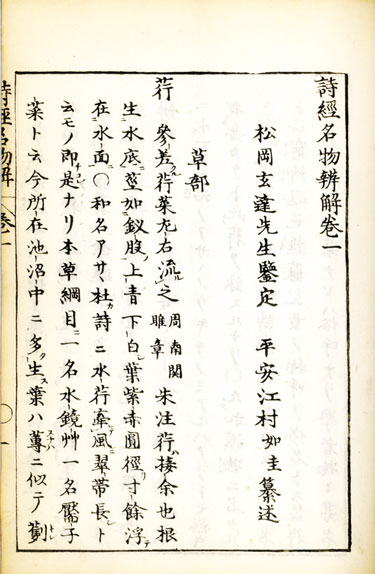 詩經名物辨解卷一
松岡玄達先生鑒定　平安江村如圭纂述
草部
荇　參差荇菜左右流ル之　周南關雎章　朱注荇ハ接余也根
生水底莖如釵股上青下白葉紫赤圓徑寸餘浮テ
在水面ニ〇和名アサヽ杜カ詩ニ水荇牽風翠帶長シト
云モノ即是ナリ本草綱目ニ一名水鏡艸一名靨子
菜ト云今所在池沼中ニ多ク生ス葉ハ蓴ニ似テ
詩經名物解　卷一　〇一